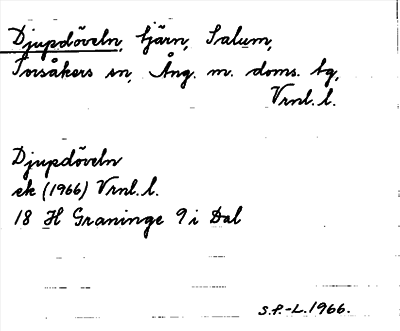 Djupdöveln, tjärn, Salum,
Torsåkers sn, Ång. m. doms. tg,
Vrnl. l.
Djupdöveln
ek (1966) Vrnl. l.
18 H Graninge 9 i Dal
S.P.-L. 1966.